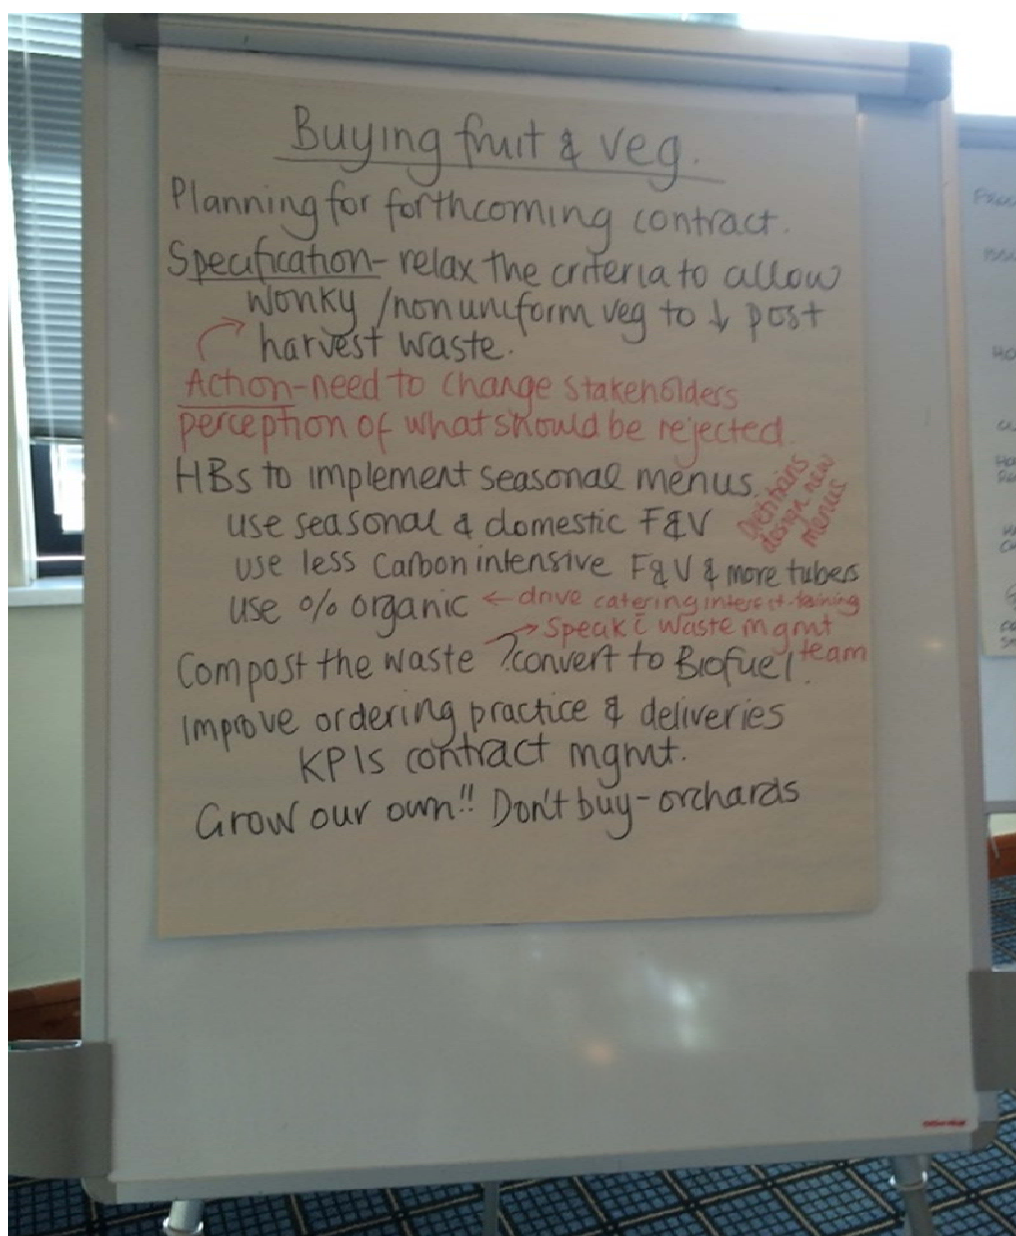 Buying fruit & veg.
Planning for forthcoming contract.
Specification - relax the criteria to allow
wonky / non uniform veg to ↓ post
harvest waste.
Action - need to change stakeholders
perception of what should be rejected.
HBs to implement seasonal menus.
Dietitians
design new
menus
use seasonal & domestic F&V
use less carbon intensive F&V & more tubers
use % organic ← drive catering interest - training
→ Speak c̄ waste mgmt
team
Compost the waste ? convert to Biofuel.
Improve ordering practice & deliveries
KPIs contract mgmt.
Grow our own!! Don't buy - orchards